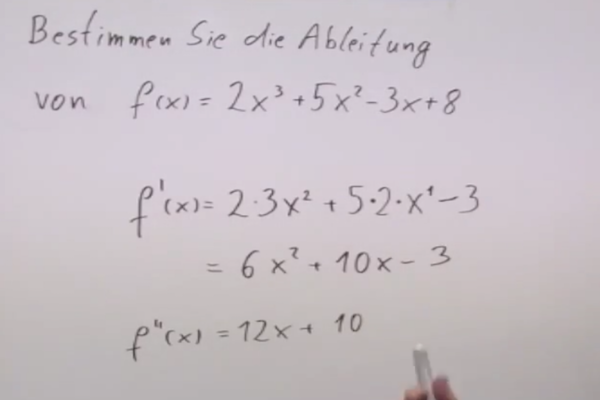 Bestimmen Sie die Ableitung
von f(x) = 2x³ + 5x² - 3x + 8
f'(x) = 2·3x² + 5·2·x¹ - 3
= 6x² + 10x - 3
f"(x) = 12x + 10